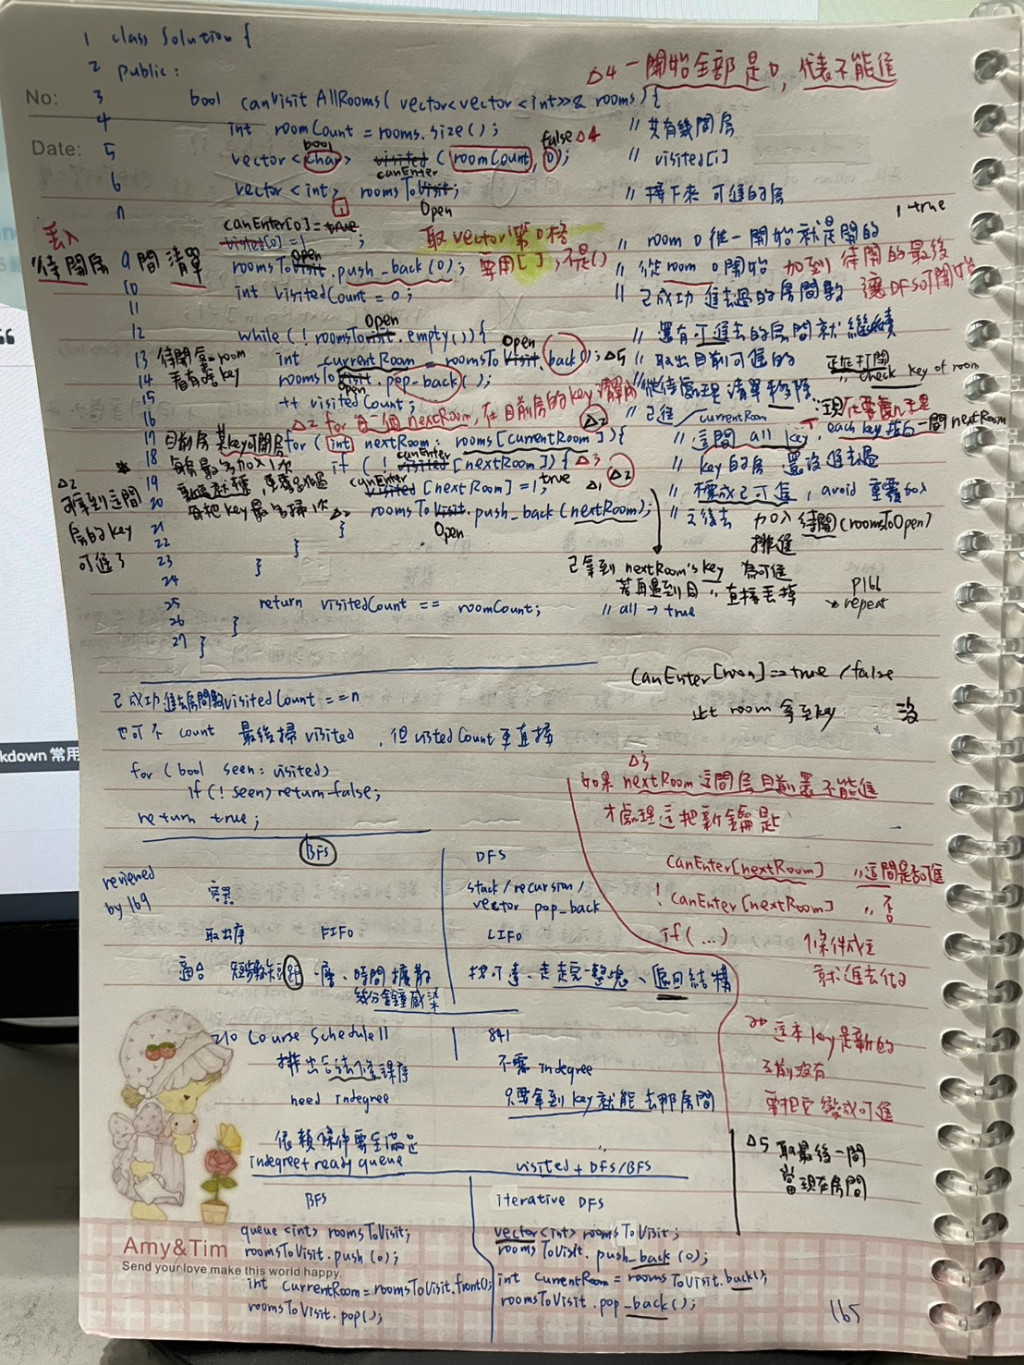 1 class Solution {
2 public:
△4 一開始全部是 0, 代表不能進
No:
3 bool canVisitAllRooms( vector<vector<int>>& rooms) {
4 int roomCount = rooms.size(); // 共有幾間房
Date:
bool false △4
5 vector<char> visited (roomCount, 0); // visited[i]
canEnter
6 vector<int> roomsToVisit; // 接下來 可進的房
Open
canEnter[0] = true 取 vector 第 0 格 1 true
visited[0] = 1; // room 0 從一開始就是開的
丟入
待開房間清單
9 roomsToVisit.push_back(0); 要用[ ], 不是() // 從 room 0 開始 加到 待開的最後
Open
10 int visitedCount = 0; // 已成功 進去過的房間數 讓DFS可開始
11
Open
12 while(!roomsToVisit.empty()){ // 還有可進去的房間就繼續
Open
13 待開 room int currentRoom = roomsToVisit.back(); △5 // 取出目前可進的 正在打開
14 看有啥 key roomsToVisit.pop_back(); // 從待處理清單移除 check key of room
Open
15 ++ visitedCount; // 已進 / currentRoom
16 △2 for 每一個 nextRoom, 在目前房的 key 清單內 △2 each key 指向一間 nextRoom
17 目前房 某key可開房 for (int nextRoom : rooms[currentRoom]){ // 這間 all key
canEnter
18 每房最多加入1次 if (!visited[nextRoom]) { △3 // key的房 還沒進去過
canEnter true
19 visited[nextRoom] = 1; △1 △2 // 標成已可進, avoid 重覆加入
△2
可拿到這間
房的 key
可進了
20 每把key最多掃1次 △2 roomsToVisit.push_back(nextRoom); // 之後去 加入 待開(roomsToOpen)
Open
排進
21 }
22 }
23 }
24
已拿到 nextRoom's key 為可進
若再遇到目 〃 直接丟掉
p166
* repeat
25 return visitedCount == roomCount; // all → true
26 }
27 }
canEnter[room] => true / false
此 room 拿到key 沒
已成功進去房間數 visitedCount == n
也可不 count 最後掃 visited, 但 visitedCount 更直接
for (bool seen : visited)
if (! seen) return false;
return true;
△3
如果 nextRoom 這間房目前還不能進
才處理這把新鑰匙
canEnter[nextRoom] 〃這間是否可進
! canEnter[nextRoom] 〃 否
if (...) 條件成立
就進去做
這本 key 是新的
之前沒有
要把它變成可進
BFS DFS
reviewed
by 169
stack / recursion /
vector pop_back
取出序 FIFO LIFO
適合 一層、時間擴散 找可達、走走完一整塊、返回結構
幾分鐘感染
210 Course Schedule II 841
排出合法修課序 不需 indegree
need indegree 只要拿到 key 就能去那房間
依賴條件要全滿足
indegree+ready queue visited + DFS/BFS
△5 取最後一間
當現在房間
BFS iterative DFS
queue<int> roomsToVisit; vector<int> roomsToVisit;
roomsToVisit.push(0); roomsToVisit.push_back(0);
int currentRoom = roomsToVisit.front(); int currentRoom = roomsToVisit.back();
roomsToVisit.pop(); roomsToVisit.pop_back();
165
Amy&Tim
Send your love make this world happy.
kdown 常用